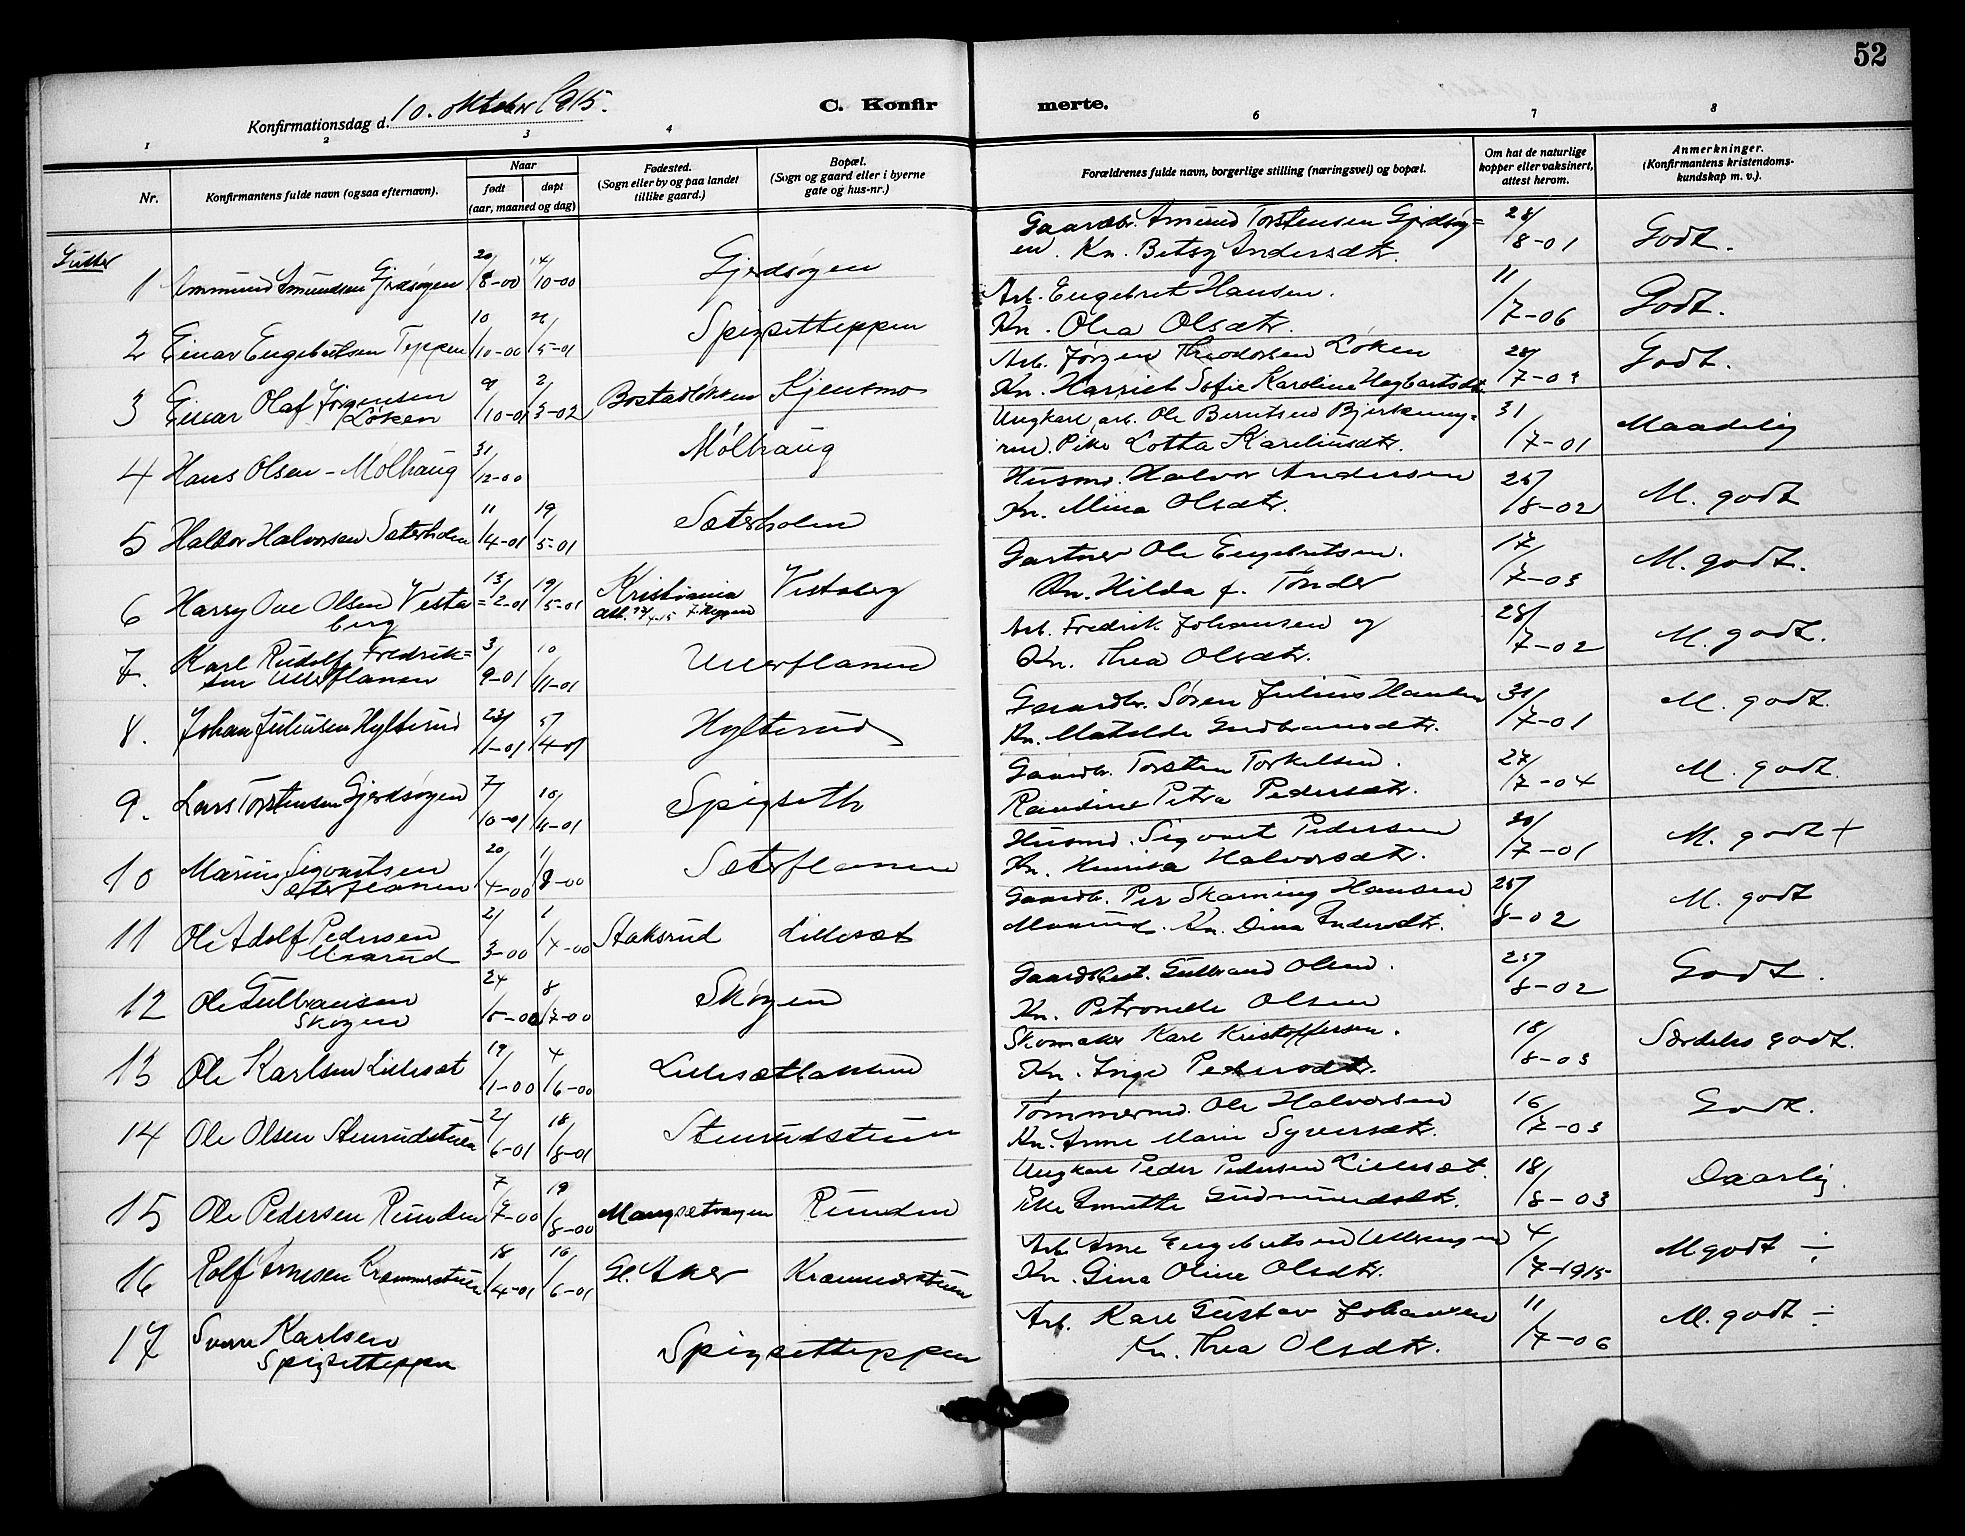 52
Konfirmationsdag d. 10. oktober 1915.
C. Konfir
merte.
1 2 3 4 6 7 8
Nr.
Konfirmantens fulde navn (ogsaa efternavn).
Naar
født
døpt
(aar, maaned og dag)
Fødested.
(Sogn eller by og paa landet
tillike gaard.)
Bopæl.
(Sogn og gaard eller i byerne
gate og hus-nr.)
Forældrenes fulde navn, borgerlige stilling (næringsvei) og bopæl.
Om hat de naturlige
kopper eller vaksinert,
attest herom.
Anmerkninger.
(Konfirmantens kristendoms-
kundskap m. v.).
Gutter
1 Ammund Amundsen Gjerdsøgen 20/8-00 14/10-00 Gjerdsøgen
Gaardbr. Amund Torstensen Gjerdsøg=
en. Kn. Betsy Andersdtr. 28/8-01 Godt.
2 Einar Engebretsen Teppen 10/10-00 26/5-01 Spigsetteppen
Arb. Engebret Hansen.
Kn. Olea Olsdtr. 11/7-06 Godt.
3 Einar Olaf Jørgensen
Løken 9/10-01 2/3-02 Bostadløkken Kjensmo
Arb. Jørgen Theodorsen Løken
Kn. Harriet Sofie Karoline Hagbartsdtr 28/7-03 Godt.
4 Hans Olsen - Mølhaug 31/12-00 Mølhaug
Ungkarl, arb. Ole Berntsen Bjerkeeng=
Pike Lotta Kareliusdtr. 31/7-01 Maadelig
5 Halvor Halvorsen Sæterholen 11/4-01 19/5-01 Sæterholen
Husmd. Halvor Andersen
Kn. Mina Olsdtr. 25/8-02 M. godt
6 Harry Ove Olsen Vesta
=berg 13/2-01 19/5-01 Kristiania Vestaberg
Gartner Ole Engebretsen.
Kn. Hilda f. Tonder 17/7-03 M. godt.
7. Karl Rudolf Fredrik=
sen Ullerflanen 3/9-01 10/11-01 Ullerflanen
Arb. Fredrik Johansen og
Kn. Thea Olsdtr. 28/7-02 M. godt.
8. Johan Juliussen Hylterud 23/1-01 5/4-01 Hylterud
Gaardbr. Søren Julius Hansen
Kn. Matelde Gudbrandsdtr. 31/7-01 M. godt.
9. Lars Torstensen Gjerdsøgen 7/10-01 10/11-01 Spigseth
Gaardbr. Torsten Torkelsen.
Randine Petra Pedersdtr. 27/7-04 M. godt.
10 Marius Sigvartsen
Sæterflanen 20/4-00 1/8-00 Sæterflanen
Husmd. Sigvart Pedersen
Kn. Henrika Halvorsdtr. 30/7-01 M. godt +
11 Ole Adolf Pedersen
Moarud 2/3-00 1/4-00 Staksrud Lillesæt
Gaardbr. Per Skarning Hansen
Moarud. Kn. Dina Andersdtr. 25/8-02 M. godt
12 Ole Gulbransen
Skøgen 24/5-00 8/7-00 Skøgen
Gaardbest. Gulbrand Olsen.
Kn. Petronelle Olsen 25/8-02 Godt.
13 Ole Karlsen Lillesæt 19/1-00 4/6-00 Lillesætbakken
Skomaker Karl Kristoffersen.
Kn. Inge Pedersdtr. 18/8-03 Særdeles godt.
14 Ole Olsen Stenrudstuen 2/6-01 18/8-01 Stenrudstuen
Tømmermd. Ole Halvorsen
Kn. Anne Marie Syversdtr. 16/7-03 Godt.
15 Ole Pedersen Runden 7/7-00 19/8-00 Mangsætvangen Runden
Ungkarl Peder Pedersen Lillesæt.
Pike Annette Gudmundsdtr. 18/8-03 Daarlig.
16 Rolf Arnesen Kræmmerstuen 18/4-01 16/6-01 Gl. Aker Kræmmerstuen
Arb. Arne Engebretsen Ullerengen
Kn. Gina Oline Olsdtr. 4/7-1915 M godt ÷
17 Sverre Karlsen
Spigsetteppen Spigsetteppen
Arb. Karl Gustav Johansen
Kn. Thea Olsdtr. 11/7-06 M. godt ÷